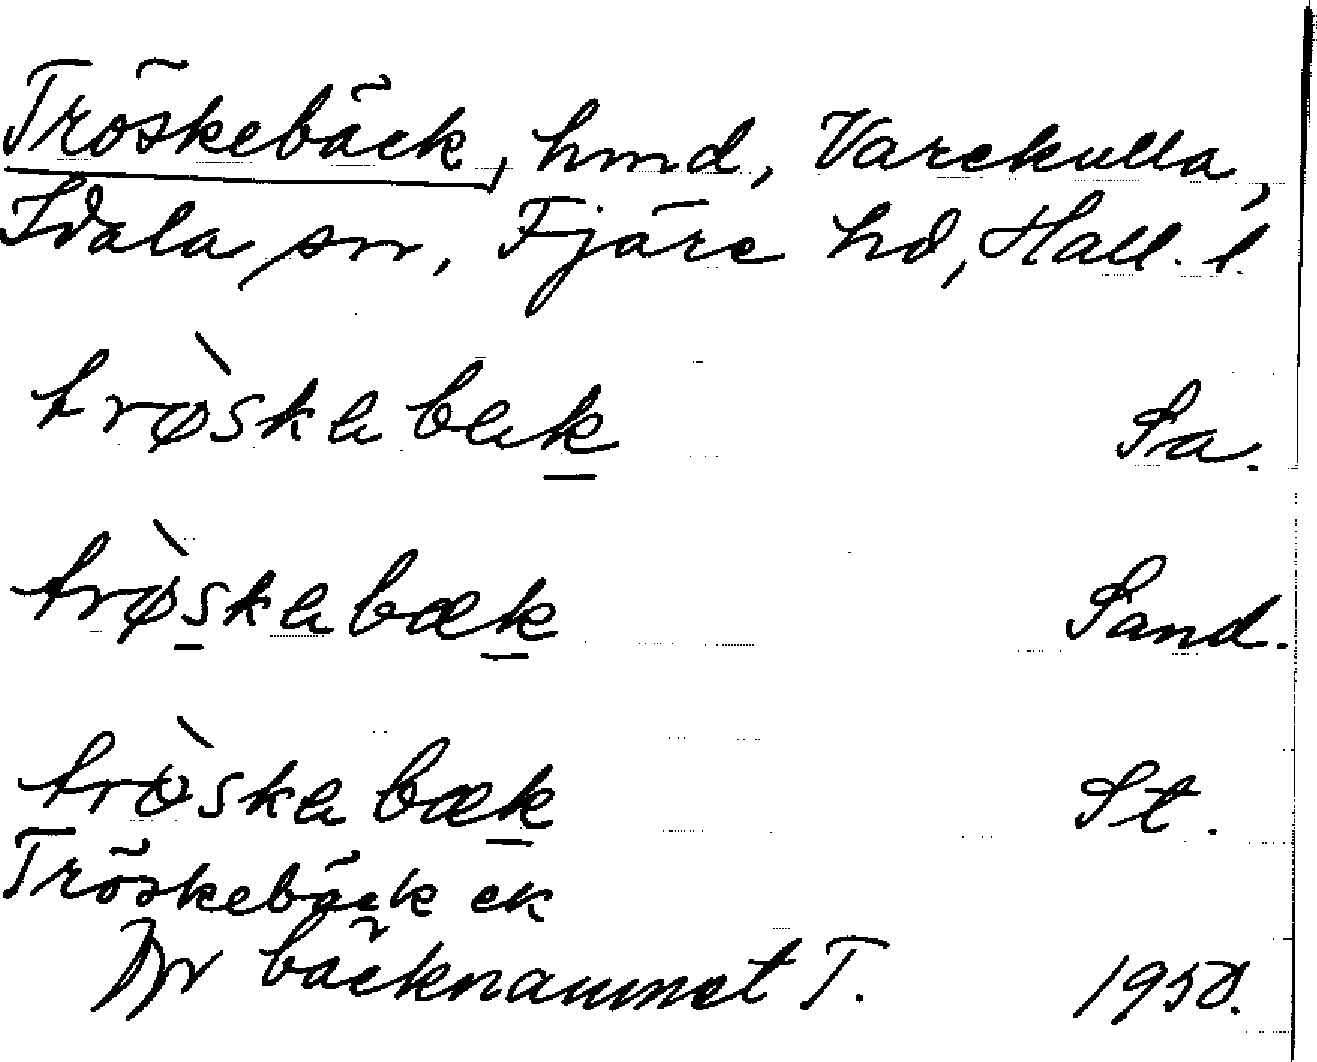 Tröskebäck, hmd, Varekulla,
Idala sn, Fjäre hd, Hall. l.
trø̀skabæk Sa.
trø̀skabæk Sand.
trø̀skabæk St.
Tröskebäck ek
Av bäcknamnet T. 1950.